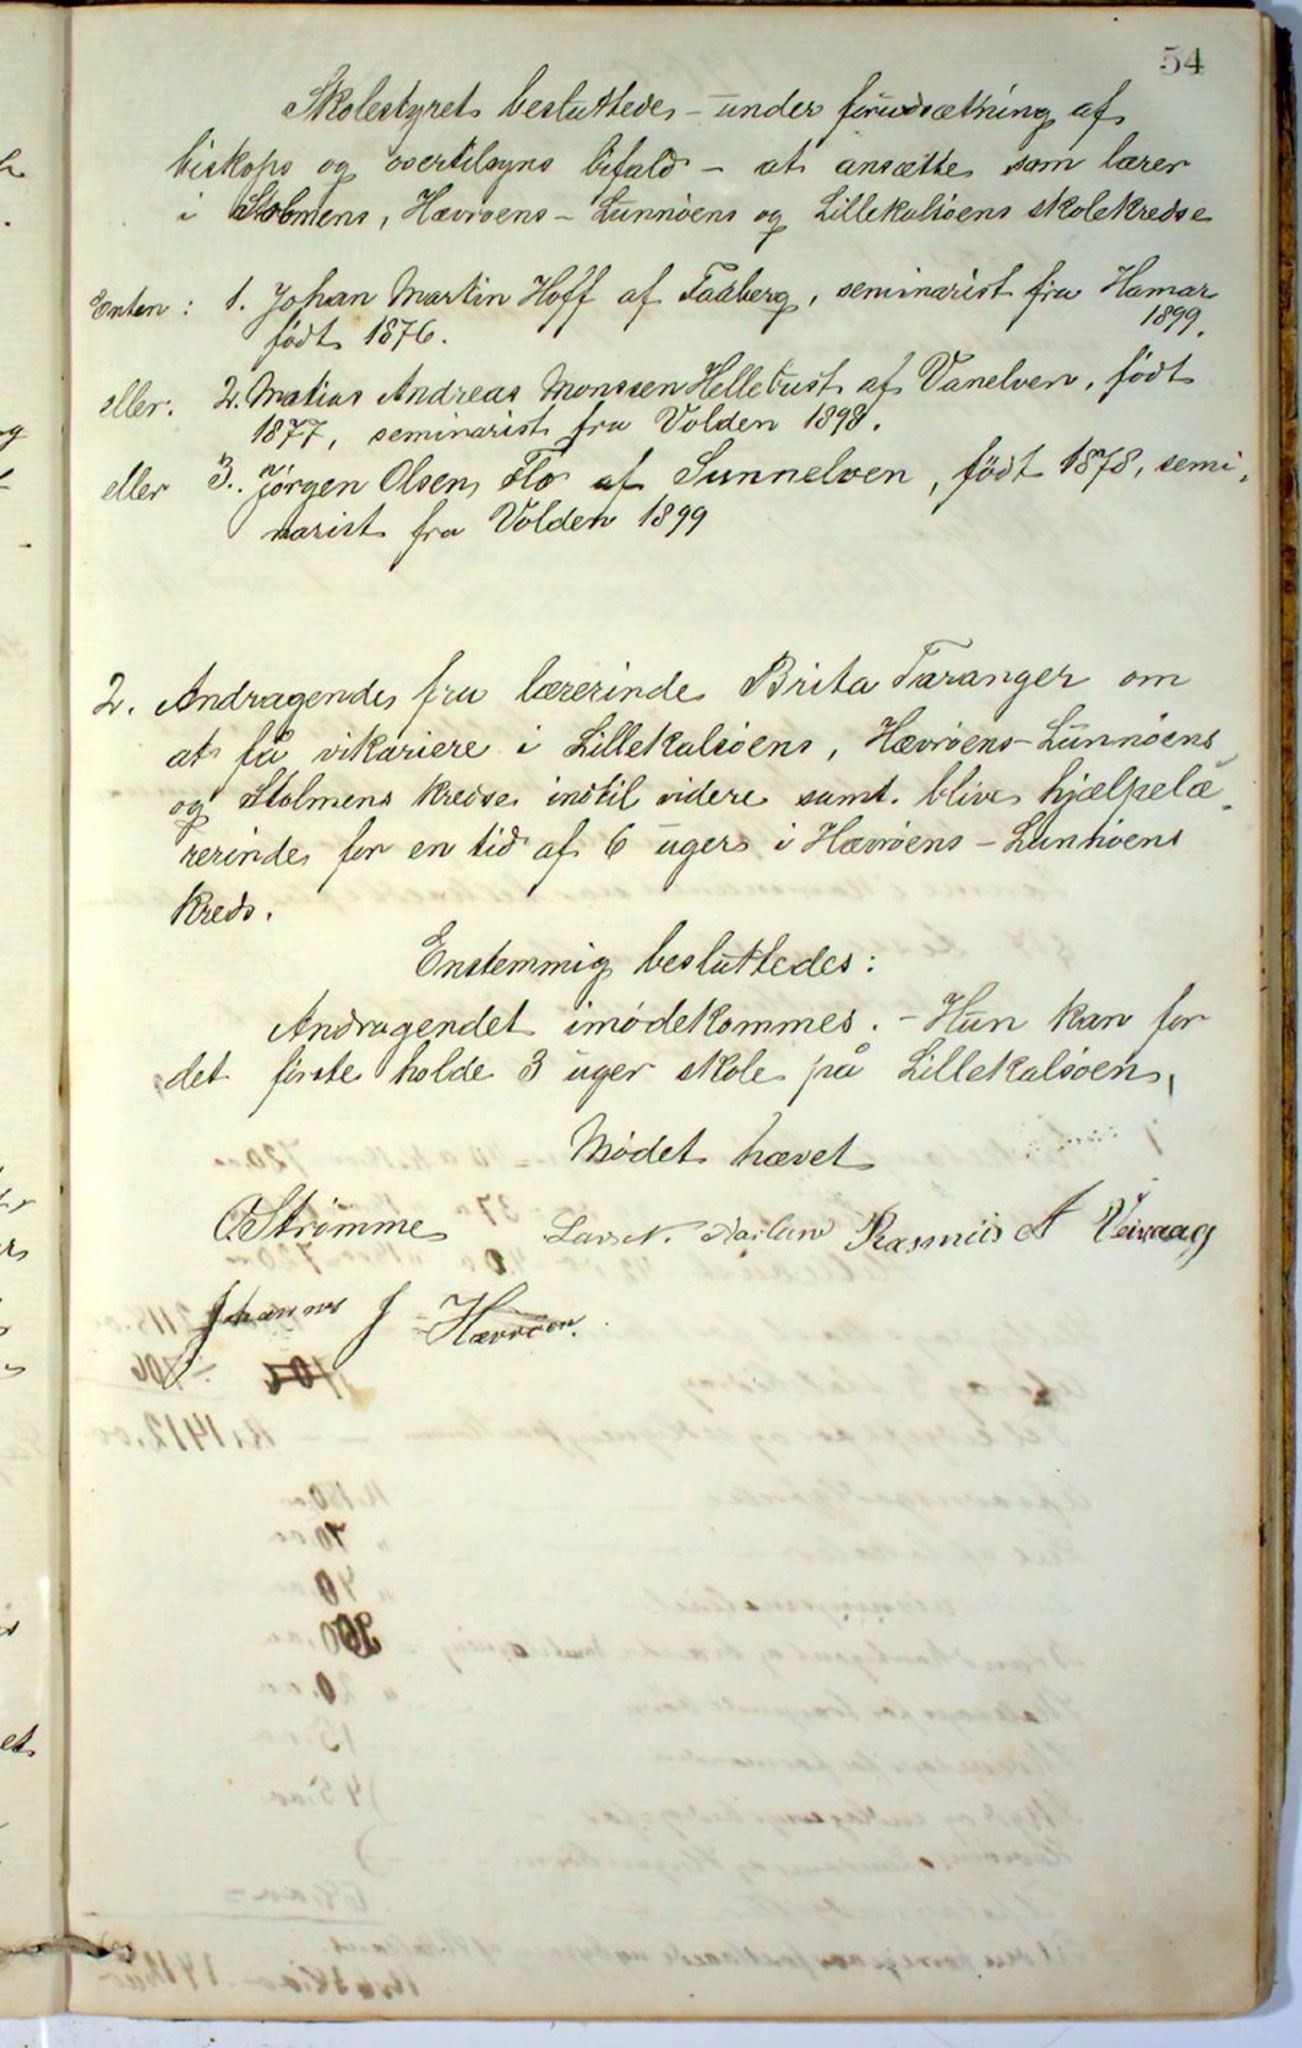 54
Skolestyret besluttede - under forudsætning af
biskops og overtilsyns bifald - at ansætte som lærer
i Stolmens, Hævrøens - Lunnøens og Lillekalsøens skolekredse
Enten: 1. Johan Martin Hoff af Faaberg, seminarist fra Hamar
født 1876. 1899.
eller. 2. Matias Andreas Monssen Hellebust af Vanelven, født
1877, seminarist fra Volden 1898.
eller 3. Jørgen Olsen Flo af Sunnelven, født 1878, semi-
narist fra Volden 1899
2. Andragende fra lærerinde Brita Taranger om
at få vikariere i Lillekalsøens, Hævrøens-Lunnøens
og Stolmens kredse indtil videre samt. blive hjælpelæ-
rerinde for en tid af 6 uger i Hævrøens - Lunnøens
kreds.
Enstemmig besluttedes:
Andragendet imødekommes. - Hun kan for
det første holde 3 uger skole på Lillekalsøen,
Mødet hævet
O Strømme Lars N. Rasmus A Veivaag
Johannes J Hævrøen.